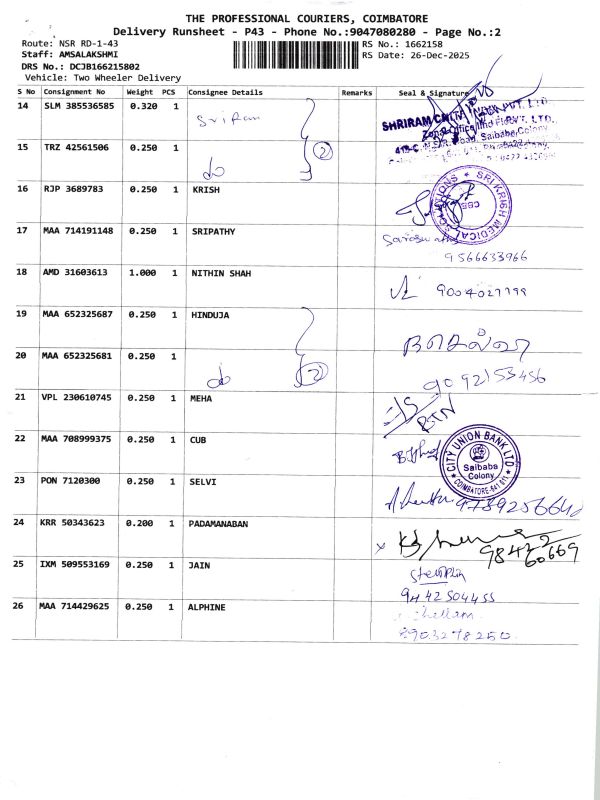 THE PROFESSIONAL COURIERS, COIMBATORE
Delivery Runsheet - P43 - Phone No.:9047080280 - Page No.:2
Route: NSR RD-1-43 RS No.: 1662158
Staff: AMSALAKSHMI RS Date: 26-Dec-2025
DRS No.: DCJB166215802
Vehicle: Two Wheeler Delivery
S No Consignment No Weight PCS Consignee Details Remarks Seal & Signature
14 SLM 385536585 0.320 1 Sriram
15 TRZ 42561506 0.250 1 do 2
16 RJP 3689783 0.250 1 KRISH
SRI KRISH MEDICAL
17 MAA 714191148 0.250 1 SRIPATHY
9566633966
18 AMD 31603613 1.000 1 NITHIN SHAH
19 MAA 652325687 0.250 1 HINDUJA
20 MAA 652325681 0.250 1 do 2
9092153456
21 VPL 230610745 0.250 1 MEHA
22 MAA 708999375 0.250 1 CUB
CITY UNION BANK LTD
Saibaba
Colony
COIMBATORE-641 011
23 PON 7120300 0.250 1 SELVI
24 KRR 50343623 0.200 1 PADAMANABAN
98422
60669
25 IXM 509553169 0.250 1 JAIN
9442504455
26 MAA 714429625 0.250 1 ALPHINE
8903278250